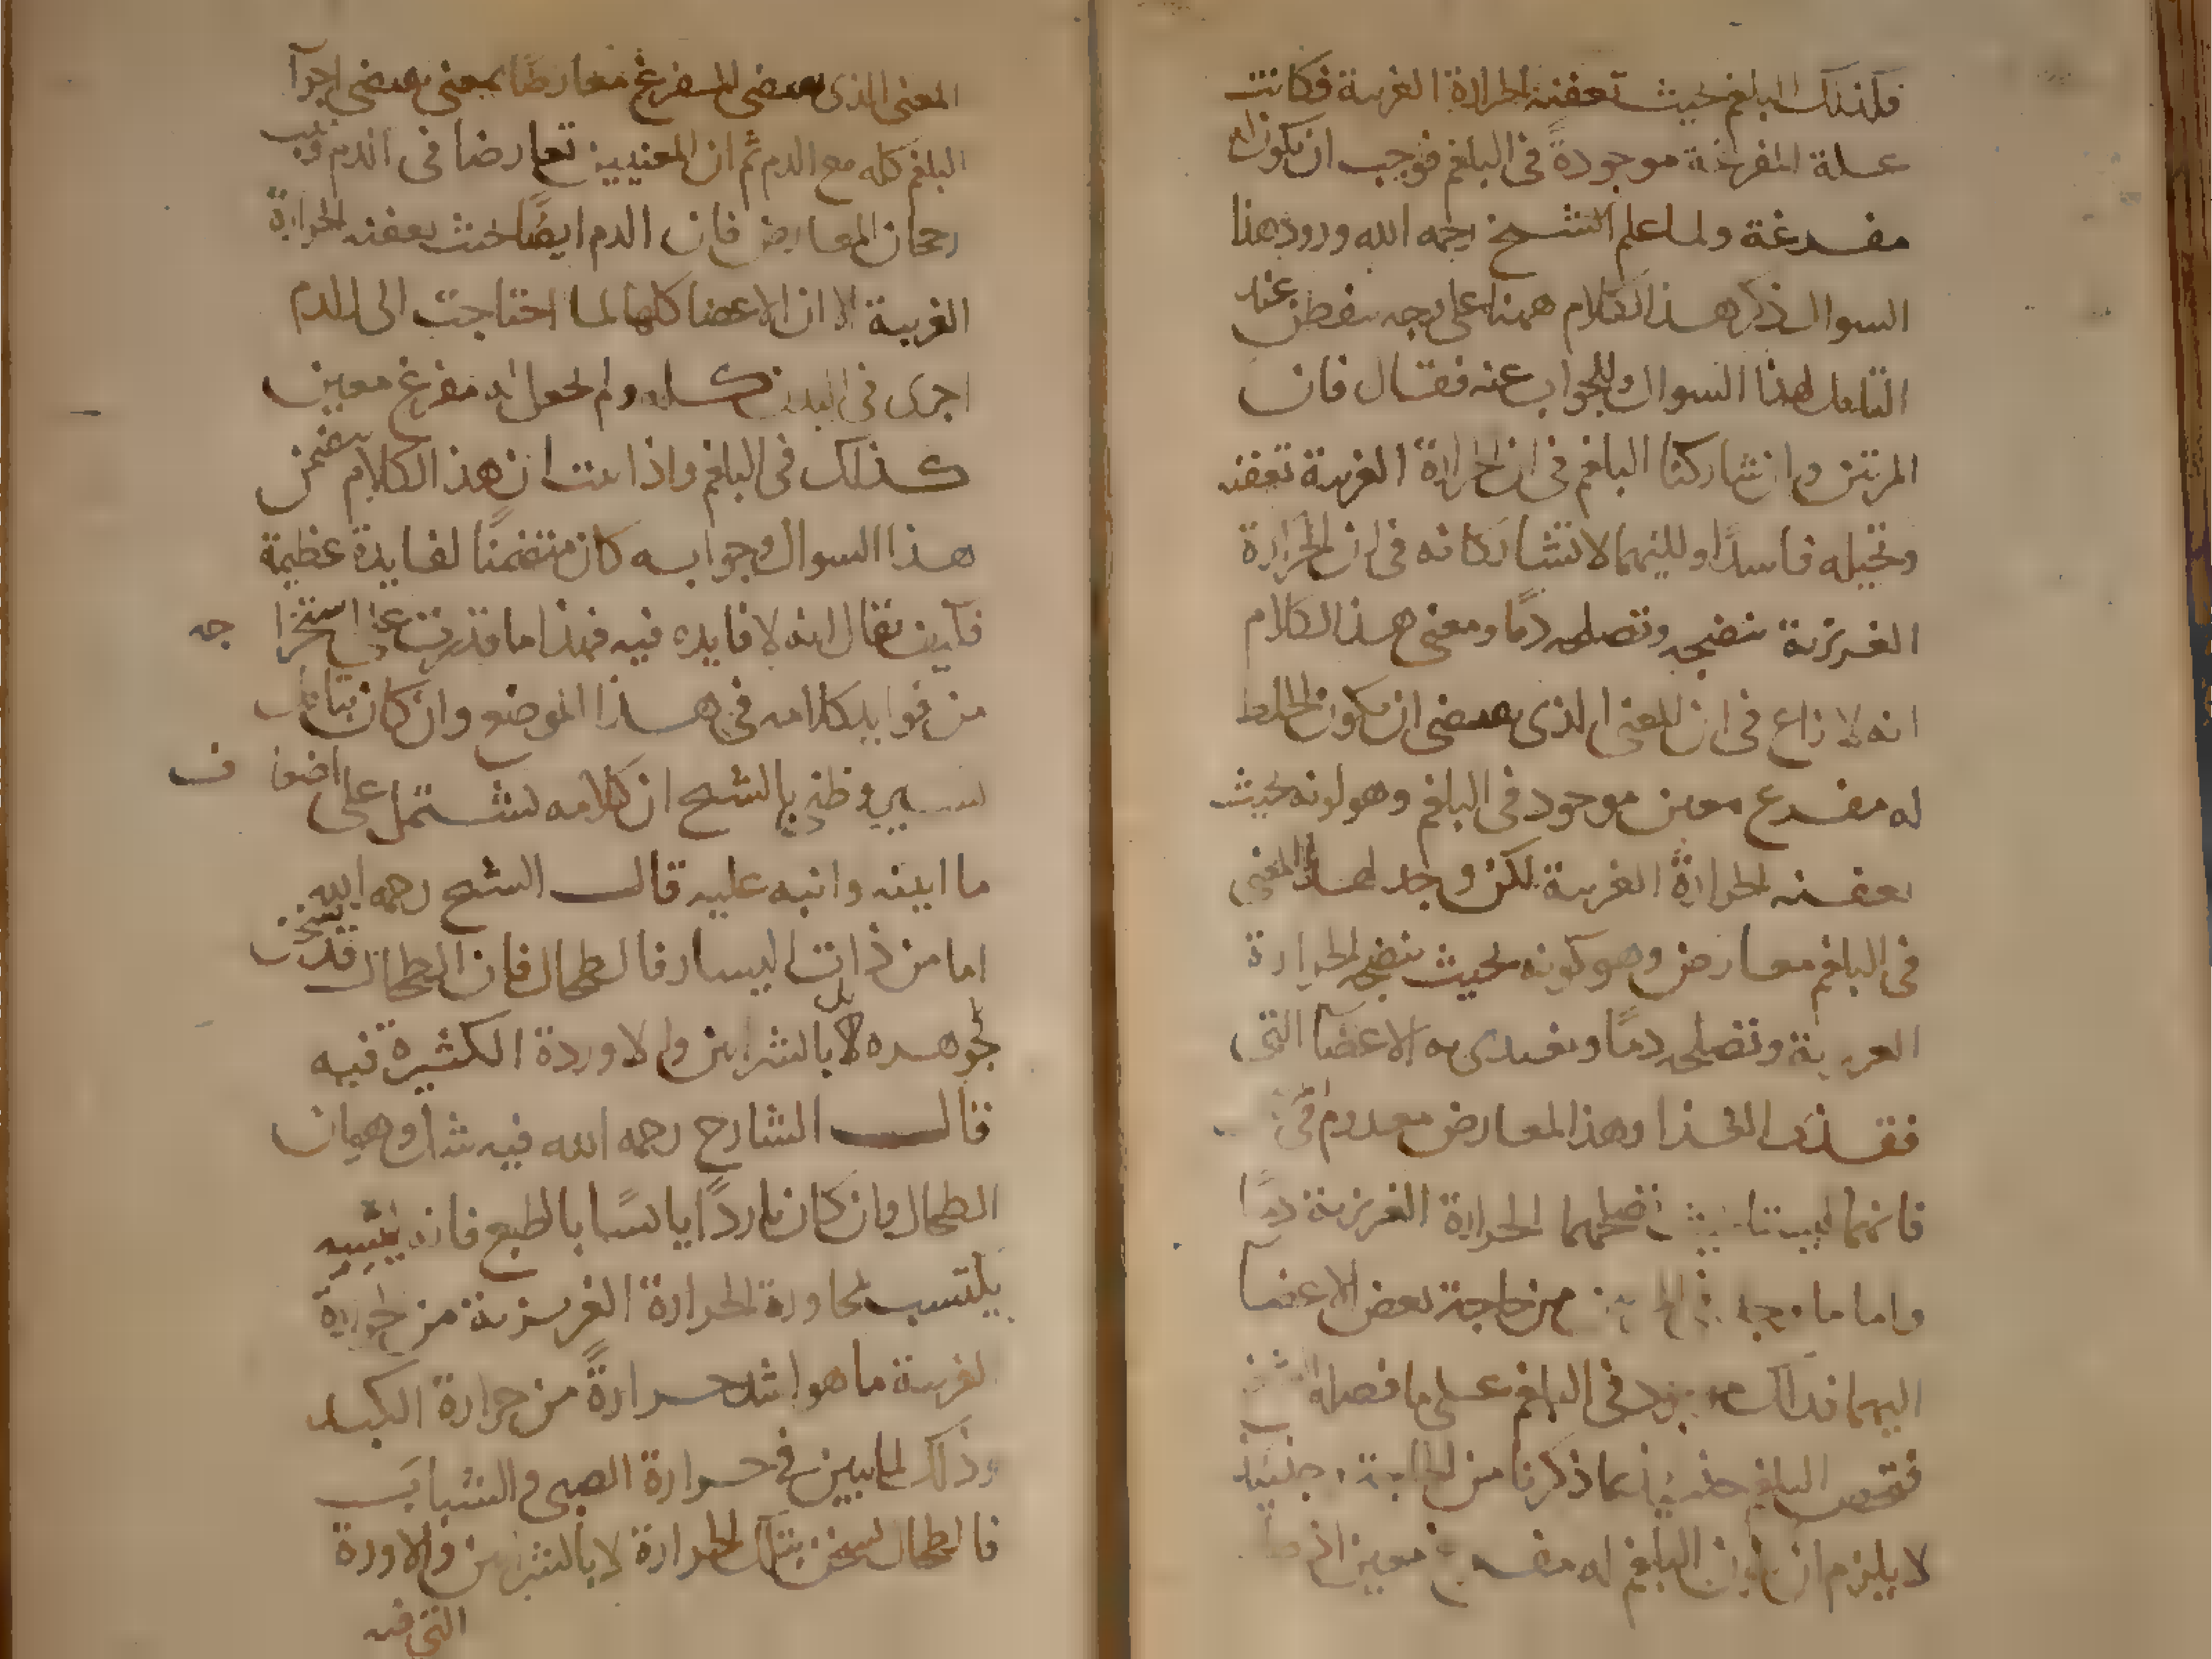 فكذلك البلغم بحيث تعفنه الحرارة الغريبة فكانت
علة المفرغة موجودة في البلغم فوجب ان يكون له
مفرغة ولما علم الشيخ رحمه الله ورود هذا
السوال ذكر هذا الكلام ههنا على وجه يتفطن عند
التامل لهذا السوال وللجواب عنه فقال فان
المرتين وان شاركتا البلغم في ان الحرارة الغريبة تعفنه
وتحيله فاسدا ولكنهما لا تشاركانه في ان الحرارة
الغريزية تنضجه وتصلحه دما ومعنى هذا الكلام
انه لا نزاع في ان المعنى الذي يقتضي ان يكون للخلط
له مفرع معين موجود في البلغم وهو كونه بحيث
تعفنه الحرارة الغريبة لكن وجد لهذا المعنى
في البلغم معارض وهو كونه بحيث تنضجه الحرارة
الغريزية وتصلحه دما وتغتدي به الاعضا التي
فقدت الغذا وهذا المعارض معدوم في
فانهما ليستا بحيث تصلحهما الحرارة الغريزية دما
واما ما من حاجة بعض الاعضا
اليهما فذاك في البلغم على ما فصله
البلغم بما ذكرنا من حينئذ
لا يلزم ان يكون البلغم له مفرغ معين اذ
المعنى الذي يقتضي المفرغ معارضا بمعنى يقتضي اجرا
البلغم كله مع الدم ثم ان المعنيين تعارضا في الدم
رجحان المعارض فان الدم ايضا بحيث تعفنه الحرارة
الغريبة الا ان الاعضا كلها لما احتاجت الى الدم
اجرى في البدن كله ولم يجعل له مفرغ معين
كذلك في البلغم واذا ثبت ان هذا الكلام يتضمن
هذا السوال وجوابه كان متضمنا لفايدة عظيمة
فكيف يقال انه لا فايده فيه فهذا ما قدرت على استخرا جه
من فوايد كلامه في هذا الموضع وان كان بتامل
يسير وظني بالشيخ ان كلامه يشتمل على اضعا ف
ما ابينه وانبه عليه قال الشيخ رحمه الله
اما من ذات اليسار فالطحال فان الطحال قد يسخن
لا بجوهره بل بالشرايين والاوردة الكثيرة فيه
قال الشارح رحمه الله فيه شك وهو ان
الطحال وان كان باردا يابسا بالطبع فانه
يكتسب لمجاورة الحرارة الغريزية من حرارة
غريبة ما هو اشد حرارة من حرارة الكبد
وذلك لما يبين في حرارة الصبي والشباب
فالطحال يسخن بتلك الحرارة لا بالشرايين والاوردة
التي فيه